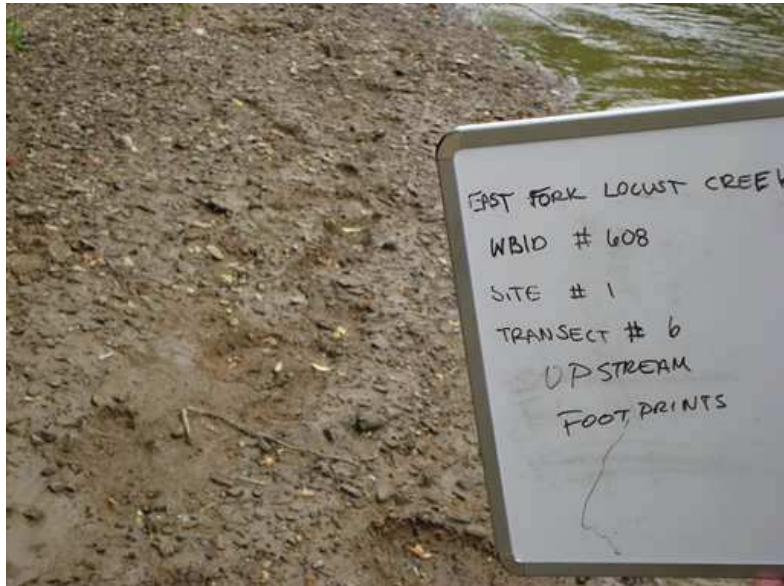 EAST FORK LOCUST CREEK
WBID # 608
SITE # 1
TRANSECT # 6
UPSTREAM
FOOT PRINTS